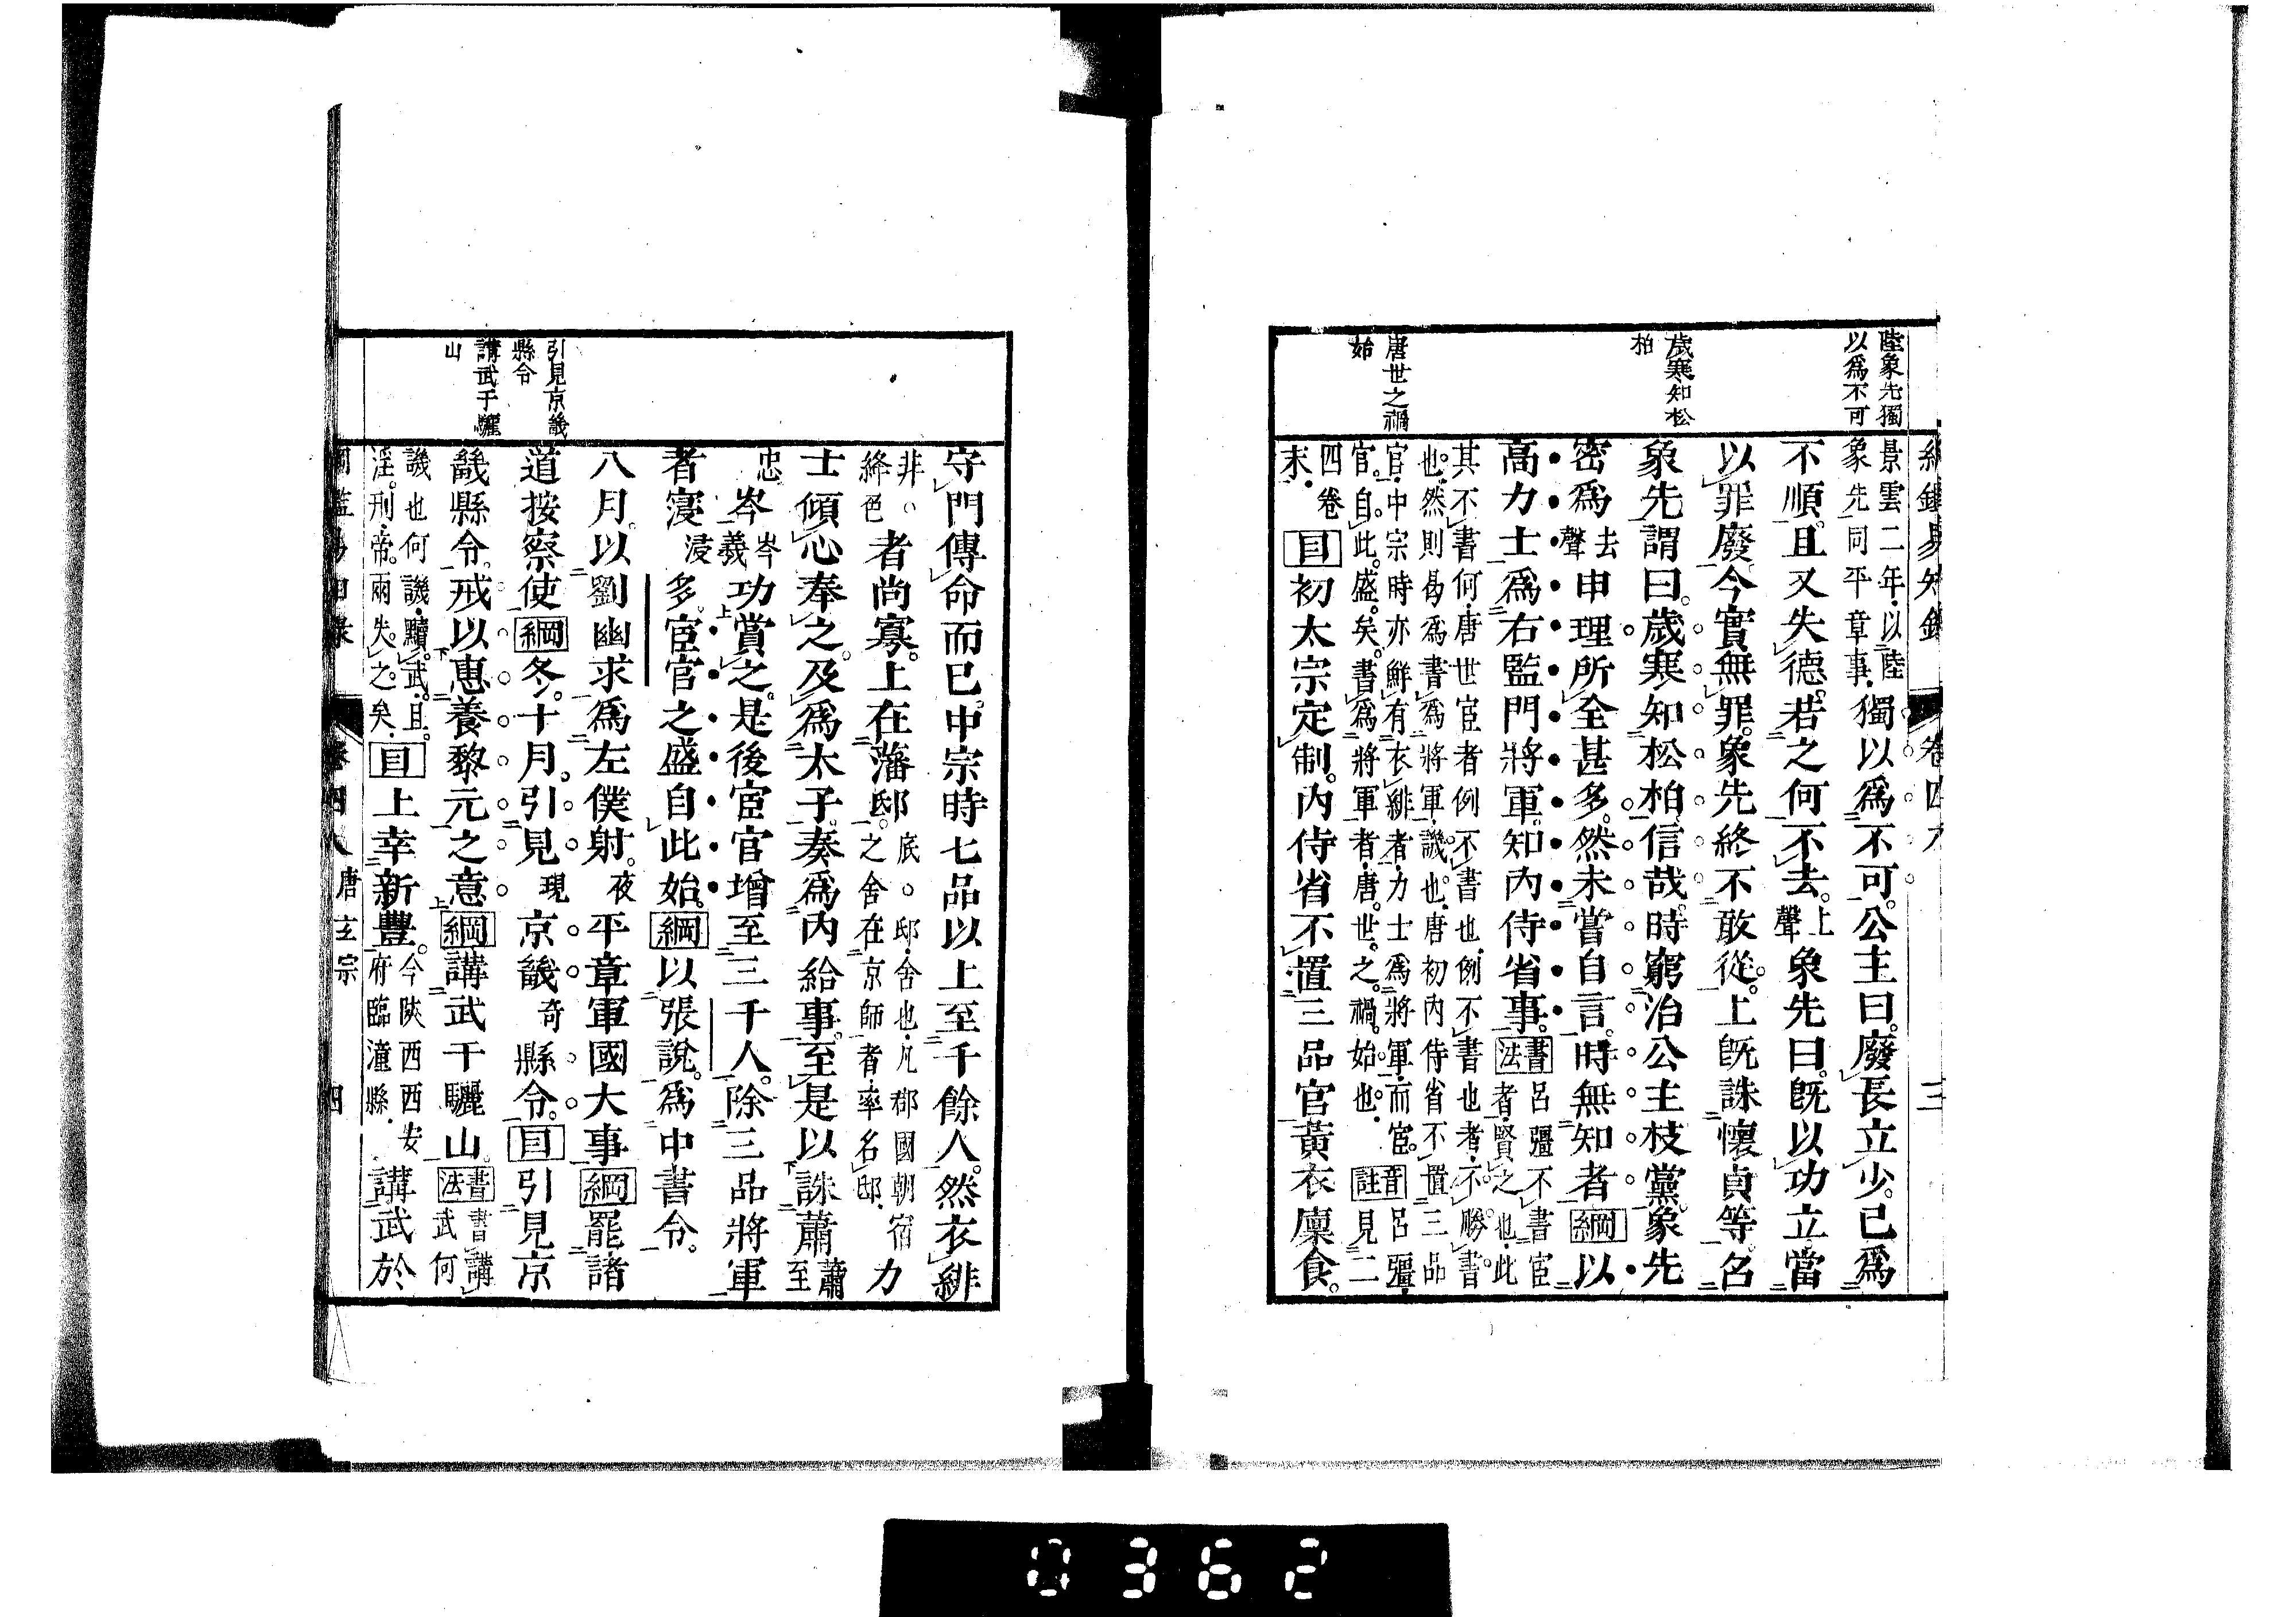 陸象先獨
以爲不可
歲寒知松
柏
唐世之禍
始
景雲二年以陸
象先同平章事獨以爲不可。公主曰。廢長立少。已爲
不順。且又失德。若之何不去。上聲象先曰。旣以功立。當
以罪廢。今實無罪。象先終不敢從。上旣誅懷貞等。名
象先謂曰。歲寒知松柏。信哉。時窮治公主枝黨。象先
密爲去聲申理所全甚多。然未嘗自言。時無知者綱以
高力士爲右監門將軍。知內侍省事。書法呂彊不書宦者賢之也此
其不書何唐世宦者例不書也例不書也者不勝書
也然則曷爲書爲將軍譏也唐初內侍省不置三品
官中宗時亦鮮有衣緋者力士爲將軍而宦
官自此盛矣書爲將軍者唐世之禍始也音註呂彊見二
四卷
末目初太宗定制。內侍省不置三品官黃衣廩食。
卷四
三
引見京畿
縣令
講武于驪
山
守門傳命而已。中宗時七品以上至千餘人。然衣緋
非絳色者尚寡。上在藩邸底邸舍也凡郡國朝宿之舍在京師者率名邸力
士傾心奉之。及爲太子。奏爲內給事。至是以誅蕭蕭至
忠岑岑義功賞之。是後宦官增至三千人。除三品將軍
者寖浸多。宦官之盛自此始。綱以張說爲中書令。
八月。以劉幽求爲左僕射。夜平章軍國大事綱罷諸
道按察使綱冬。十月。引見現京畿奇縣令。目引見京
畿縣令。戒以惠養黎元之意綱講武于驪山。書法書講武何
譏也何譏黷武且
淫刑帝兩失之矣目上幸新豐。今陝西西安府臨潼縣講武於
卷四
唐玄宗
四
0362